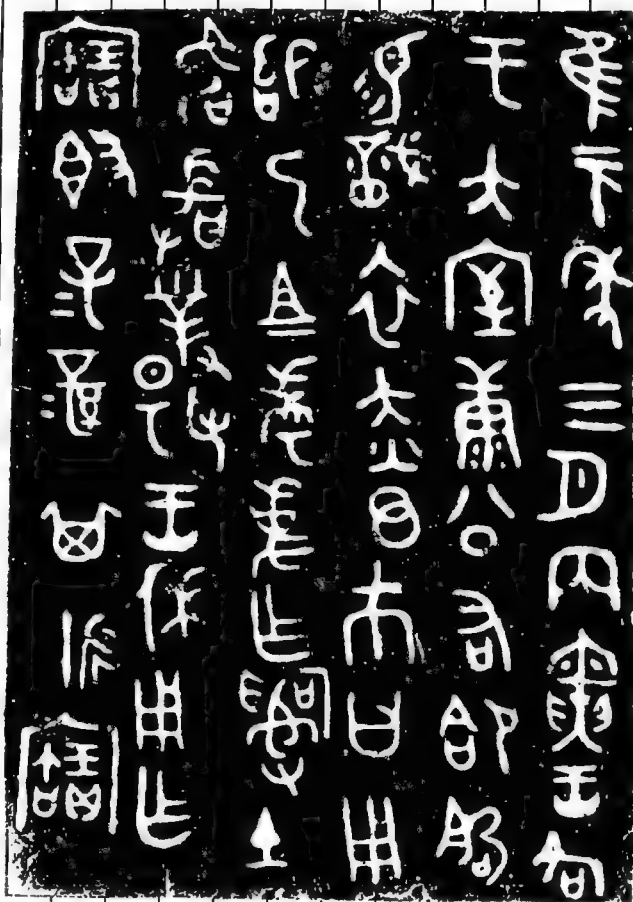 隹元年三月丙寅王各
于大室康公右郃
易戠衣赤巿曰用
乃且考事乍𤔲土
郃敢對揚王休用乍
寶𣪘子=孫=其永寶